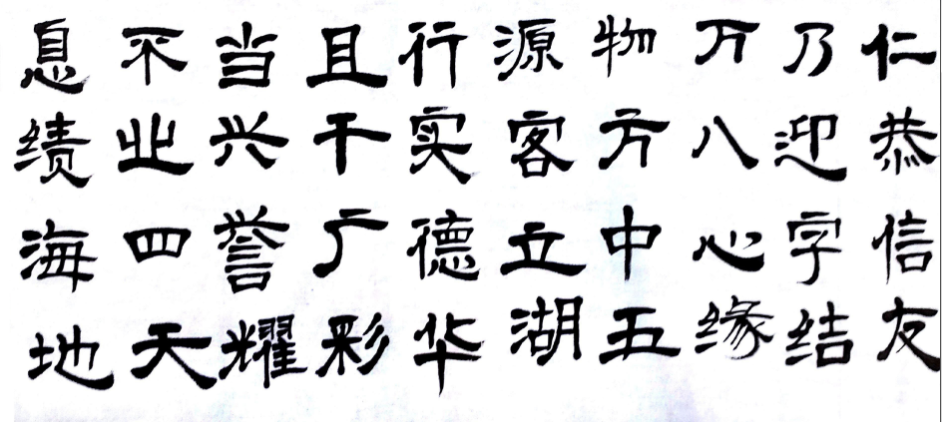 仁乃万物源行且当不息
恭迎八方客实干兴业绩
信字心中立德广誉四海
友结缘五湖华彩耀天地